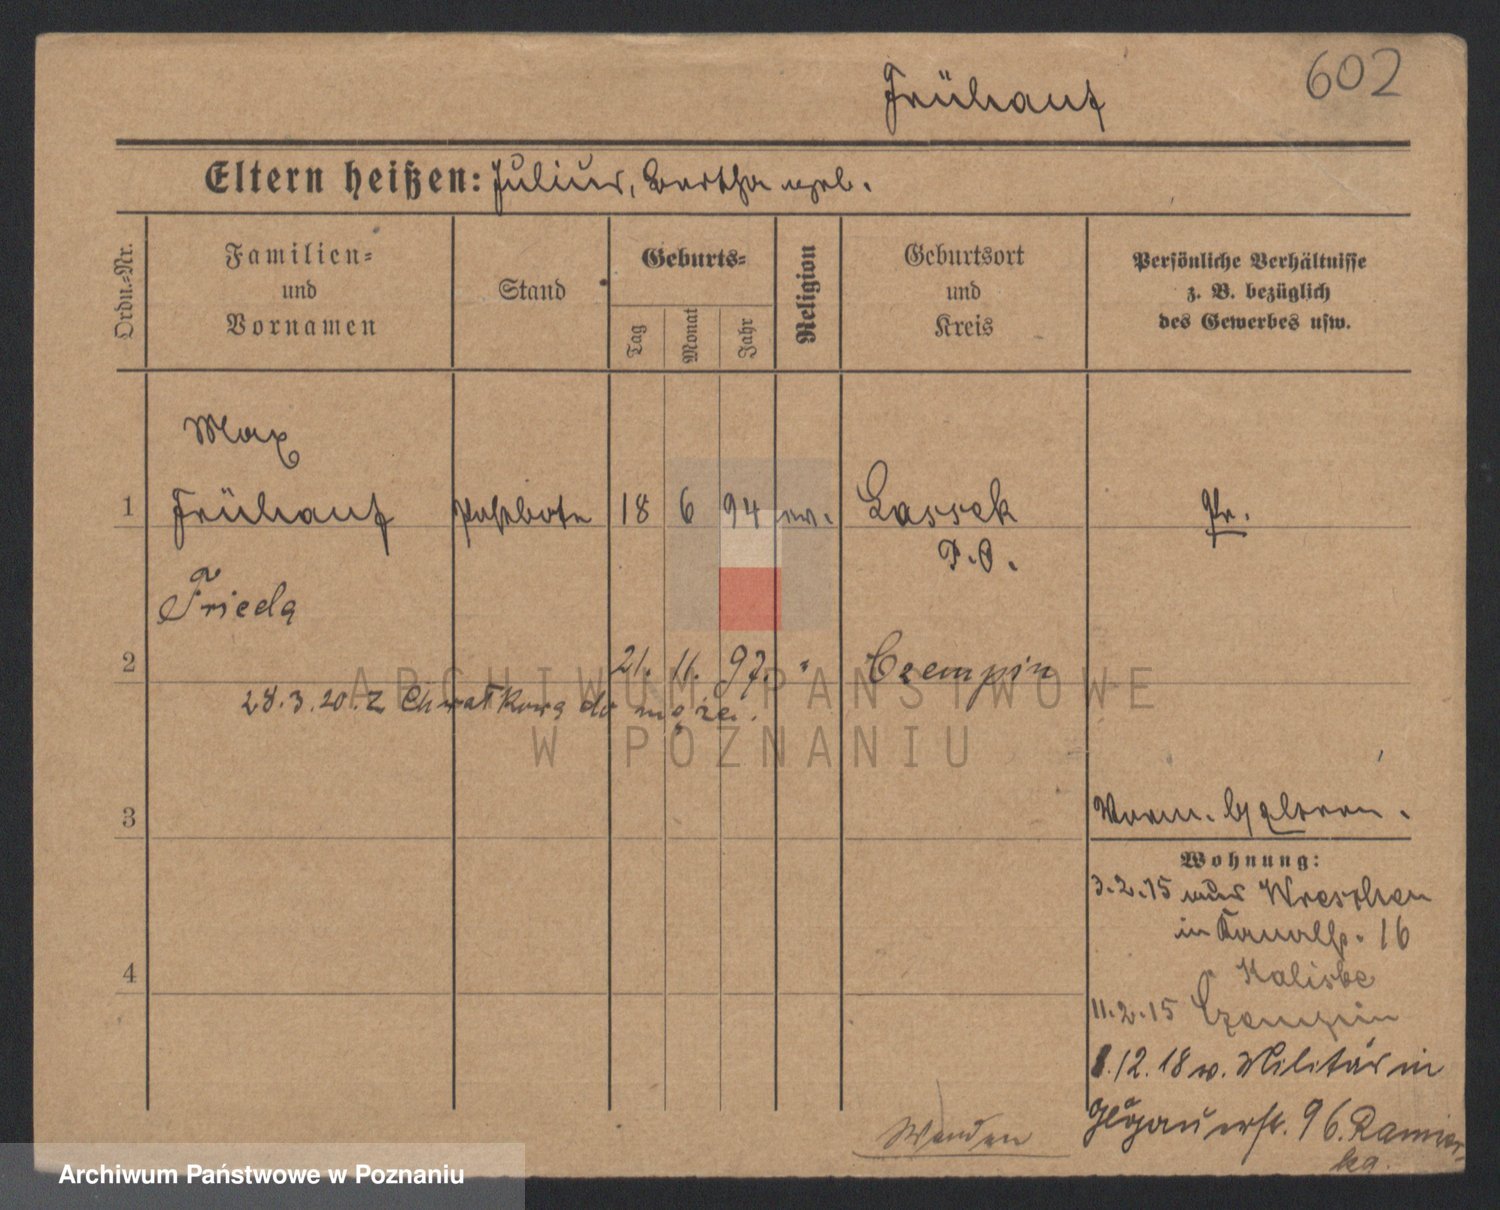 602
Frühauf
Eltern heißen: Julius, Bertha geb.
Ordn.-Nr.
Familien-
und
Vornamen
Stand
Geburts-
Tag
Monat
Jahr
Religion
Geburtsort
und
Kreis
Persönliche Verhältnisse
z. B. bezüglich
des Gewerbes usw.
Max
1 Frühauf Postbote 18 6 94 ev. Lassek Pr.
P. O.
Frieda
2 21. 11. 97. " Czempin
28.3.20. z Chwałkowa do męża.
3
Wohnung:
3.2.15 aus Wreschen
in Kanalstr. 16
4
11.2.15 Czempin
8.12.18 v. Militär in
96. Ramies-
ka.
Wenden
ARCHIWUM PAŃSTWOWE
W POZNANIU
Archiwum Państwowe w Poznaniu